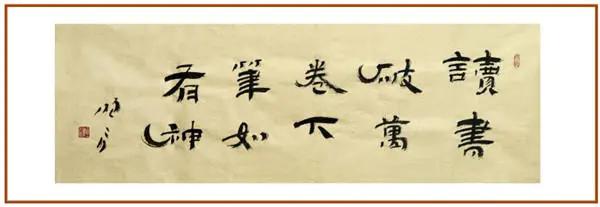 讀書
破萬
卷下
筆如
有神